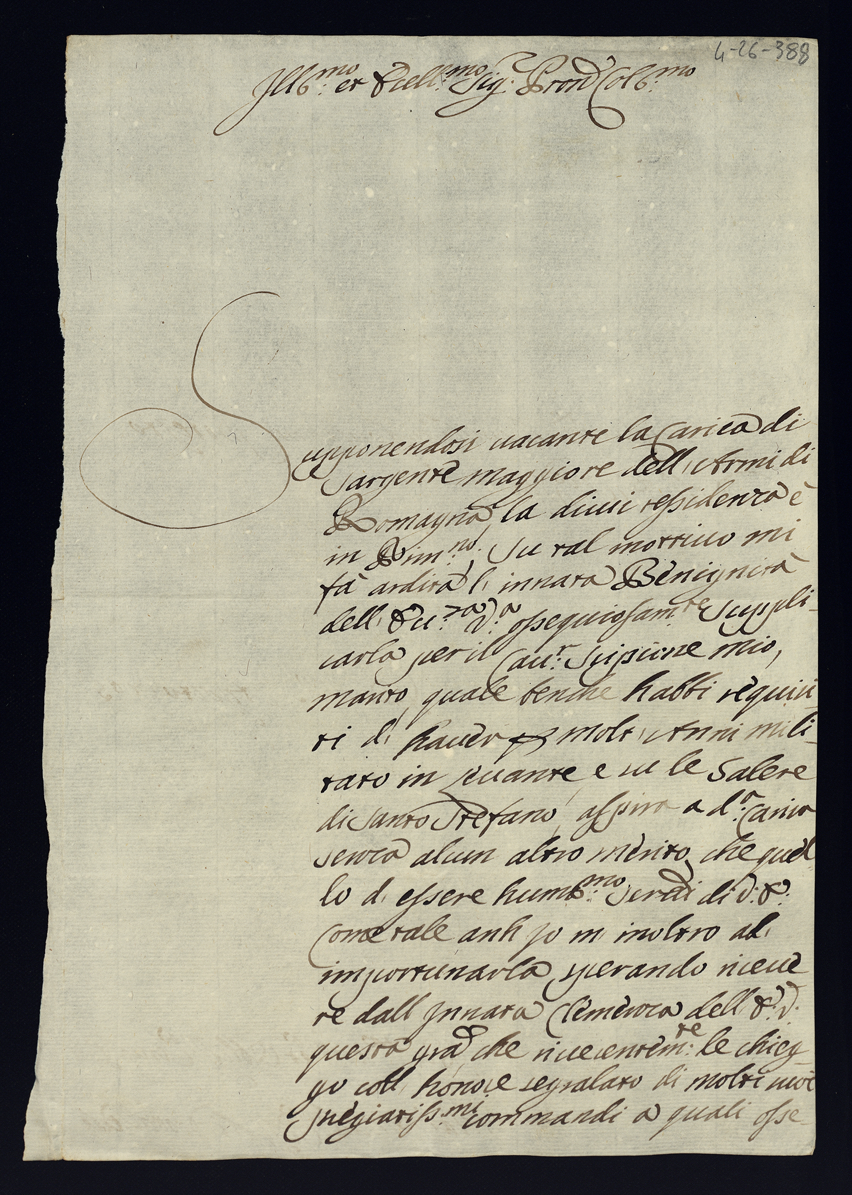 4-26-388
Illu:mo et Ecell:mo Sig:r Pron Col:mo
Supponendosi vacante la Carica di
Sargente maggiore dell'Armi di
Romagna la di cui ressidenza è
in Rim:no, Su tal mottivo mi
fà ardita l'innata Benignità
dell'Ecc:za V:a ossequiosam:te suppli-
carla per il Cau:r Scipione mio,
marito, quale benche habbi requisi-
ti di haver per molti Anni mili-
tato in Levante e su le Galere
di Santo Stefano, aspira a d:a Carica
senza alcun altro merito, che quel-
lo d'essere humil:mo Ser di V:E:
Come tale anh'jo m'inoltro ad
importunarla, sperando riceve
re dall'Innata Clemenza dell'E:V:
questa gra che riverentem:te le chieg
go coll'honore segnalato di molti suoi
pregiatiss:mi commandi a quali osse-